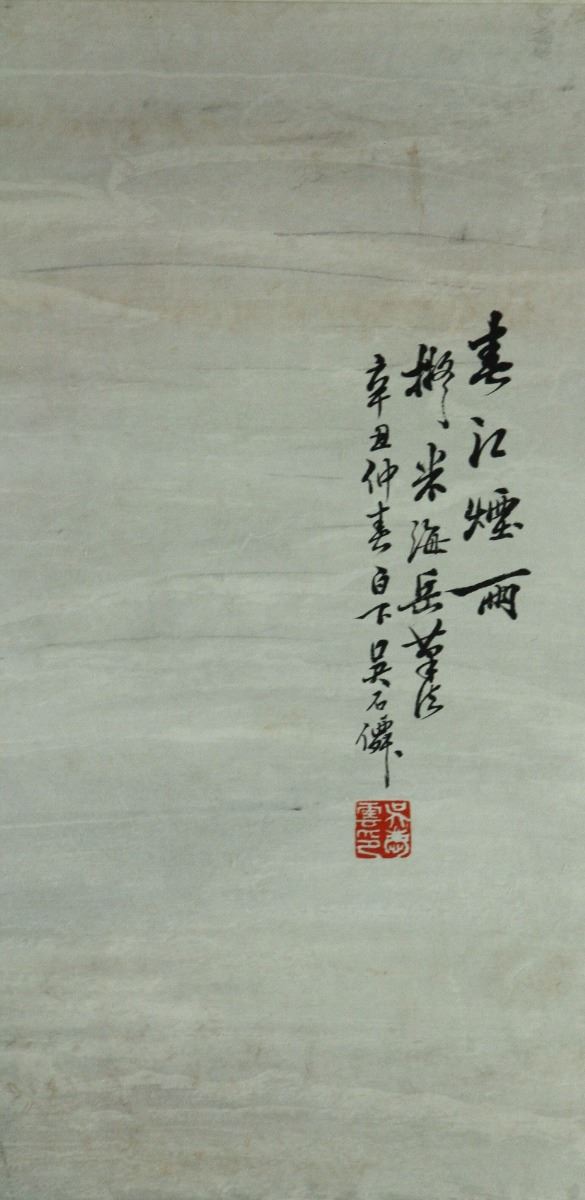 春江煙雨
擬米海岳筆法
辛丑仲春白下吳石僊
吳慶雲印